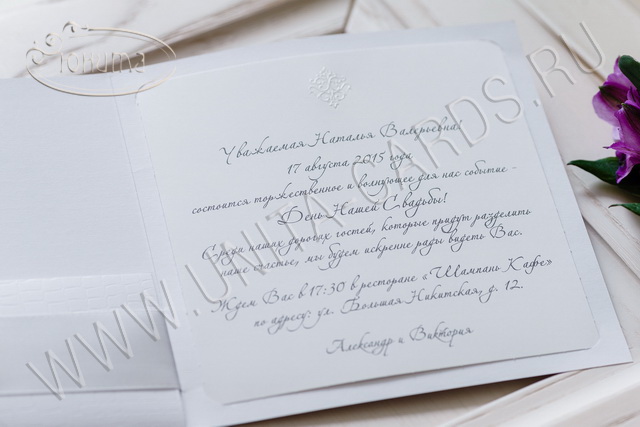 Юнита
Уважаемая Наталья Валерьевна!
17 августа 2015 года
состоится торжественное и волнующее для нас событие -
День Нашей Свадьбы!
Среди наших дорогих гостей, которые придут разделить
наше счастье, мы будем искренне рады видеть Вас.
Ждем Вас в 17:30 в ресторане «Шампань Кафе»
по адресу: ул. Большая Никитская, д. 12.
Александр и Виктория
WWW.UNITA-CARDS.RU